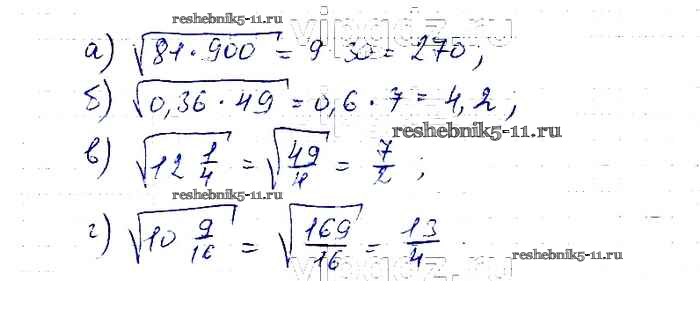 reshebnik5-11.ru
vipgdz.ru
а) √81·900 = 9 30 = 270;
б) √0,36·49 = 0,6·7 = 4,2;
vipgdz.ru
reshebnik5-11.ru
в) √12 1/4 = √49/4 = 7/2;
reshebnik5-11.ru
г) √10 9/16 = √169/16 = 13/4
reshebnik5-11.ru
vipgdz.ru